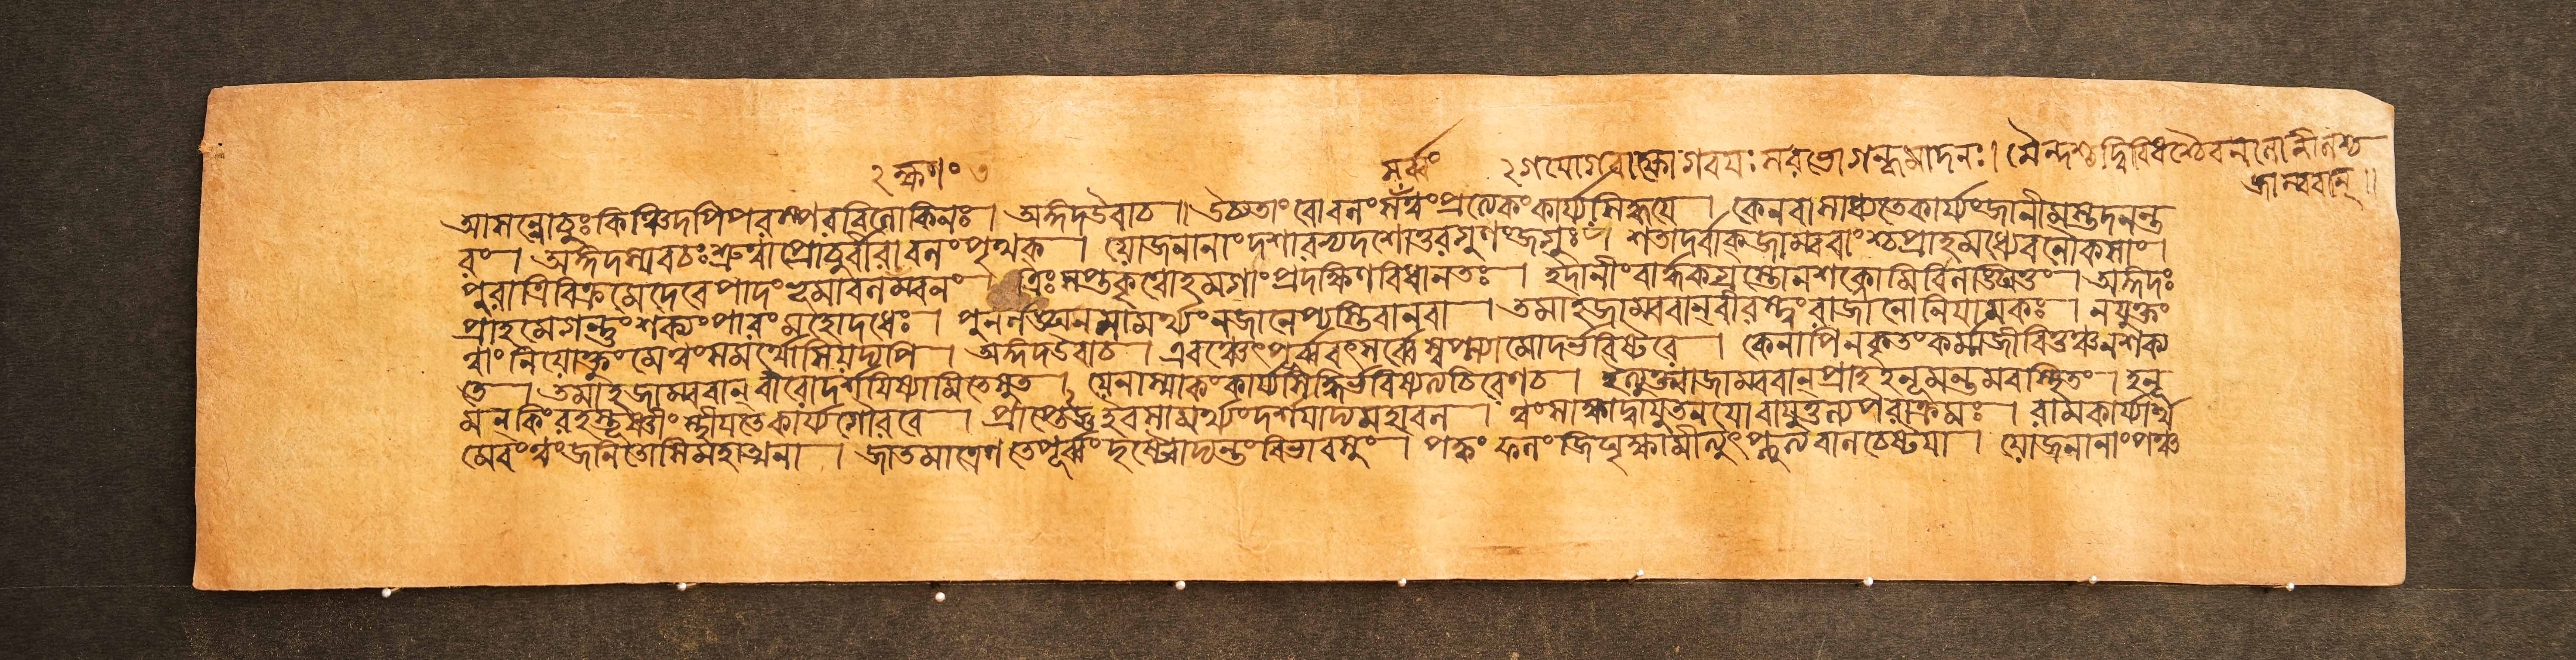 ২ ক্ষণং ৩ সর্ব্বং ২ গযোগবাক্ষো গবযঃ সরভো গন্ধমাদনঃ। মৈন্দশ্চ দ্বিবিধশ্চৈব নলো নীলশ্চ
জাম্ববান্॥
আসন্নোচুঃ কিঞ্চিদপি পরস্পরবিলোকিনঃ। অঙ্গদউবাচ॥ উচ্যতাং বো বলং সর্ব্বং প্রত্যেকং কার্য্যসিদ্ধযে। কেন বা সাধ্যতে কার্য্যং জানীমস্তদনন্ত
রং। অঙ্গদস্য বচঃ শ্রুত্বা প্রোচুর্বীরা বলং পৃথক্। যোজনানাং দশারভ্য দশোত্তরগুণং জগুঃ। শতাদর্বাক্ জাম্ববাংশ্চ প্রাহ মধ্যে বনৌকসাং।
পুরা ত্রিবিক্রমে দেবে পাদং ভূমাবলম্বনং। ত্রিঃসপ্তকৃত্বোহমগাং প্রদক্ষিণবিধানতঃ। ইদানীং বার্দ্ধকগ্রস্তো ন শক্নোমি বিলঙ্ঘিতুং। অঙ্গদঃ
প্রাহ মে গন্তুং শক্যং পারং মহোদধেঃ। পুনর্লঙ্ঘনসামর্থ্যং ন জানেপ্যস্তি বা ন বা। তমাহ জাম্ববান্ বীরস্ত্বং রাজা নো নিযামকঃ। ন যুক্তং
ত্বাং নিযোক্তুং মে ত্বং সমর্থোসি যদ্যপি। অঙ্গদউবাচ। এবঞ্চেৎ পূর্ব্ববৎ সর্ব্বে স্বপ্স্যামো দর্ভবিষ্টরে। কেনাপি ন কৃতং কর্ম্ম জীবিতুঞ্চ ন শক্য
তে। তমাহ জাম্ববান্ বীরো দর্শযিষ্যামি তে সুত। যেনাস্মাকং কার্য্যসিদ্ধির্ভবিষ্যত্যচিরেণ চ। ইত্যুক্ত্বা জাম্ববান্ প্রাহ হনূমন্তমবস্থিতং। হনূ
মন্ কিং রহস্তূষ্ণীং স্থীযতে কার্য্যগৌরবে। প্রাপ্তেজ্ঞ ইব সামর্থ্যং দর্শযাদ্য মহাবল। ত্বং সাক্ষাদ্বাযুতনযো বাযুতুল্যপরাক্রমঃ। রামকার্য্যার্থ
মেবং ত্বং জনিতোসি মহাত্মনা। জাতমাত্রেণ তে পূর্ব্বং দৃষ্ট্বোদ্যন্তং বিভাবসুং। পক্বং ফলং জিঘৃক্ষামীত্যুৎপ্লুত্য বালচেষ্টযা। যোজনানাং পঞ্চ